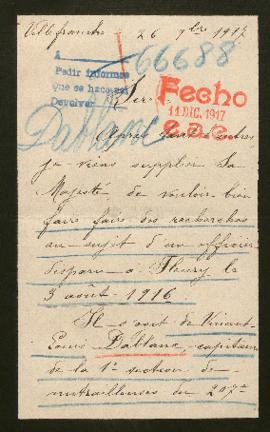 Villefranche 26 7bre 1917
A
66688
Pedir informes
que se haga así
Devolver
Fecho
11 DIC. 1917
Sire
Dablanc
Après tant d'autres
je viens supplier Sa
Majesté de vouloir bien
faire faire des recherches
au sujet d'un officier
disparu à Fleury le
3 août 1916
Il s'agit de Vincent
Louis Dablanc capitaine
de la 1e section de
mitrailleuses du 207e